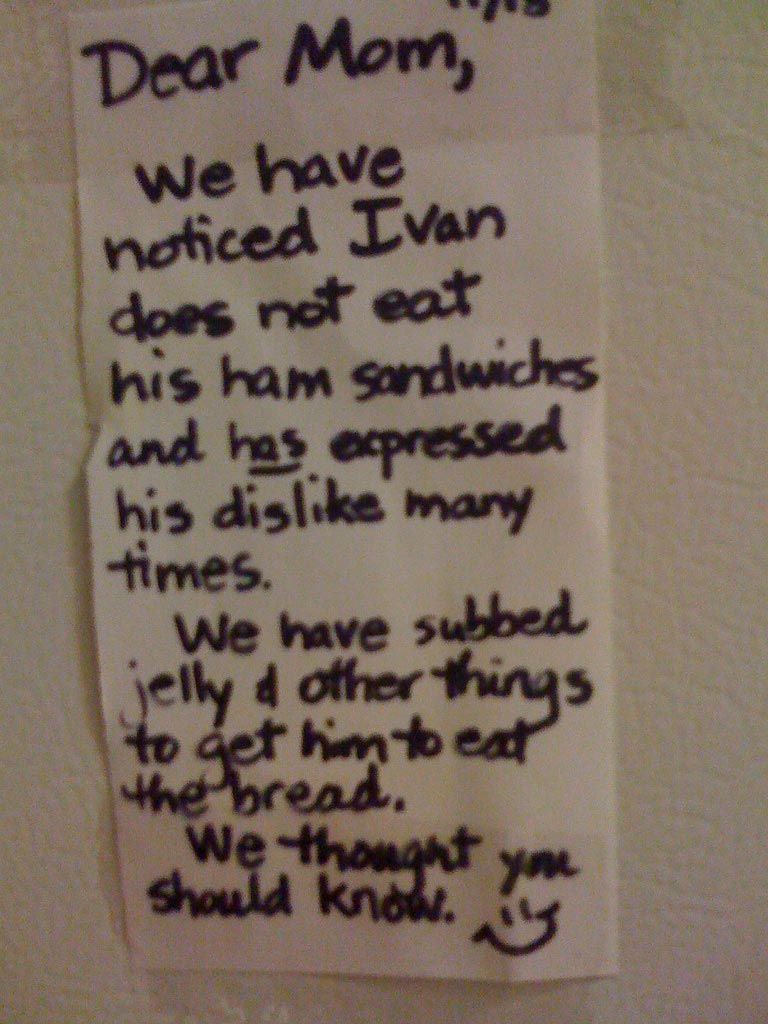 Dear Mom,
We have
noticed Ivan
does not eat
his ham sandwiches
and has expressed
his dislike many
times.
We have subbed
jelly & other things
to get him to eat
the bread.
We thought you
should know.